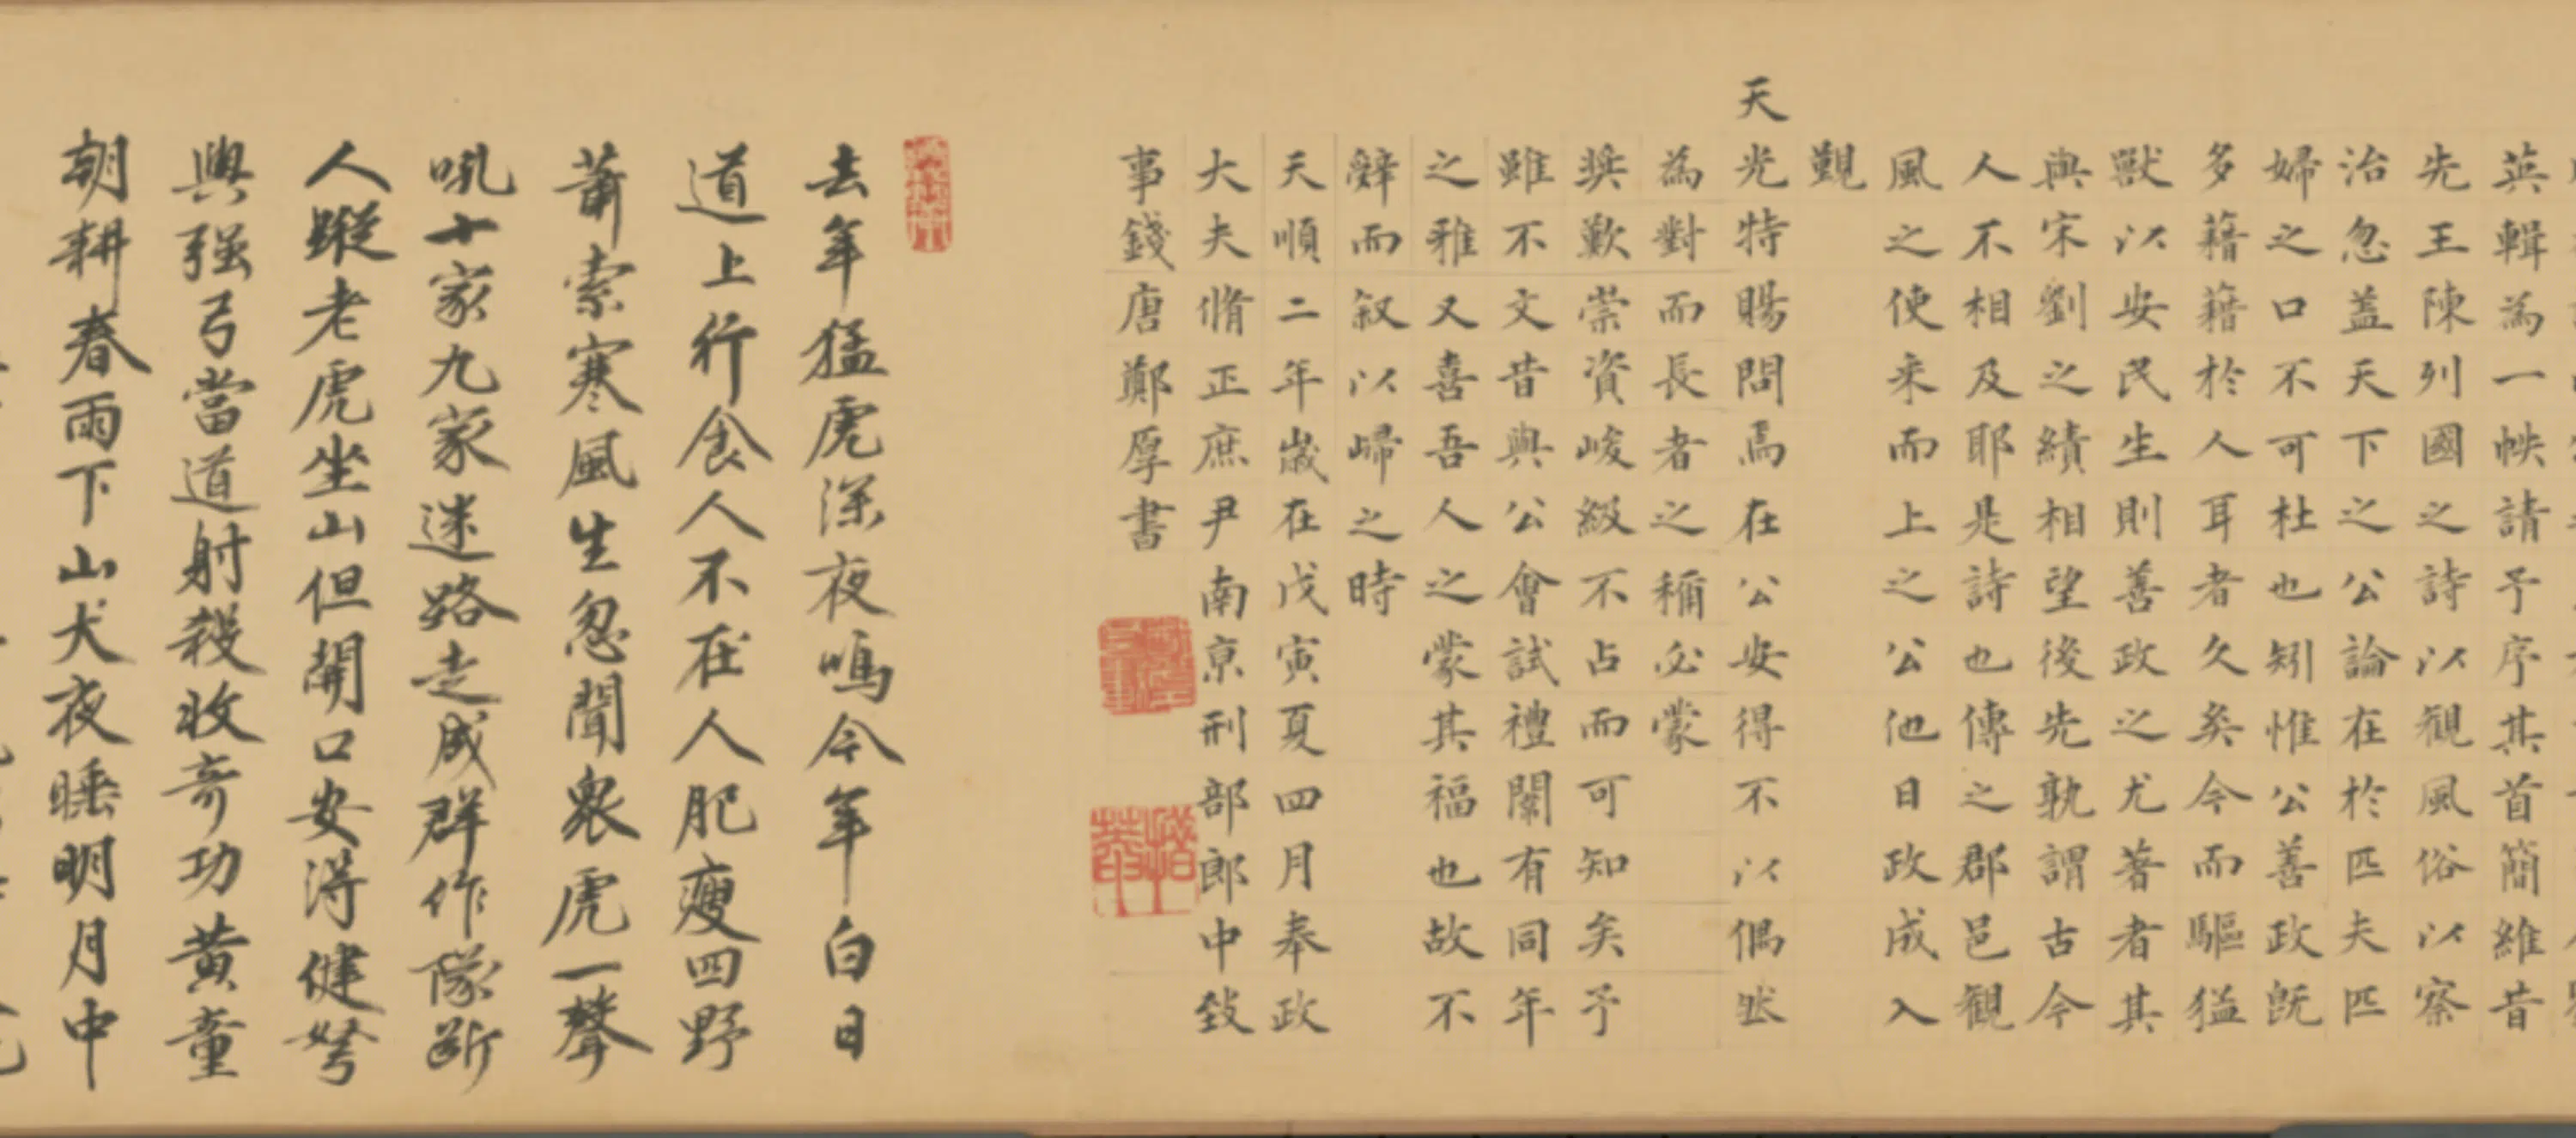 英輯為一帙請予序其首簡維昔
先王陳列國之詩以觀風俗以察
治忽蓋天下之公論在於匹夫匹
婦之口不可杜也矧惟公善政既
多藉藉於人耳者久矣今而驅猛
獸以安民生則善政之尤著者其
與宋劉之績相望後先孰謂古今
人不相及耶是詩也傳之郡邑觀
風之使来而上之公他日政成入
覲
天光特賜問焉在公安得不以偶然
為對而長者之稱必蒙
奨歎崇資峻級不占而可知矣予
雖不文昔與公會試禮闈有同年
之雅又喜吾人之蒙其福也故不
辭而叙以歸之時
天順二年歲在戊寅夏四月奉政
大夫脩正庶尹南京刑部郎中致
事錢唐鄭厚書
去年猛虎深夜鳴今年白日
道上行食人不在人肥瘦四野
蕭索寒風生忽聞裊虎一聲
吼十家九家迷路走成群作隊斷
人蹤老虎坐山但開口安得健弩
與强弓當道射殺收奇功黄童
朝耕春雨下山犬夜睡明月中